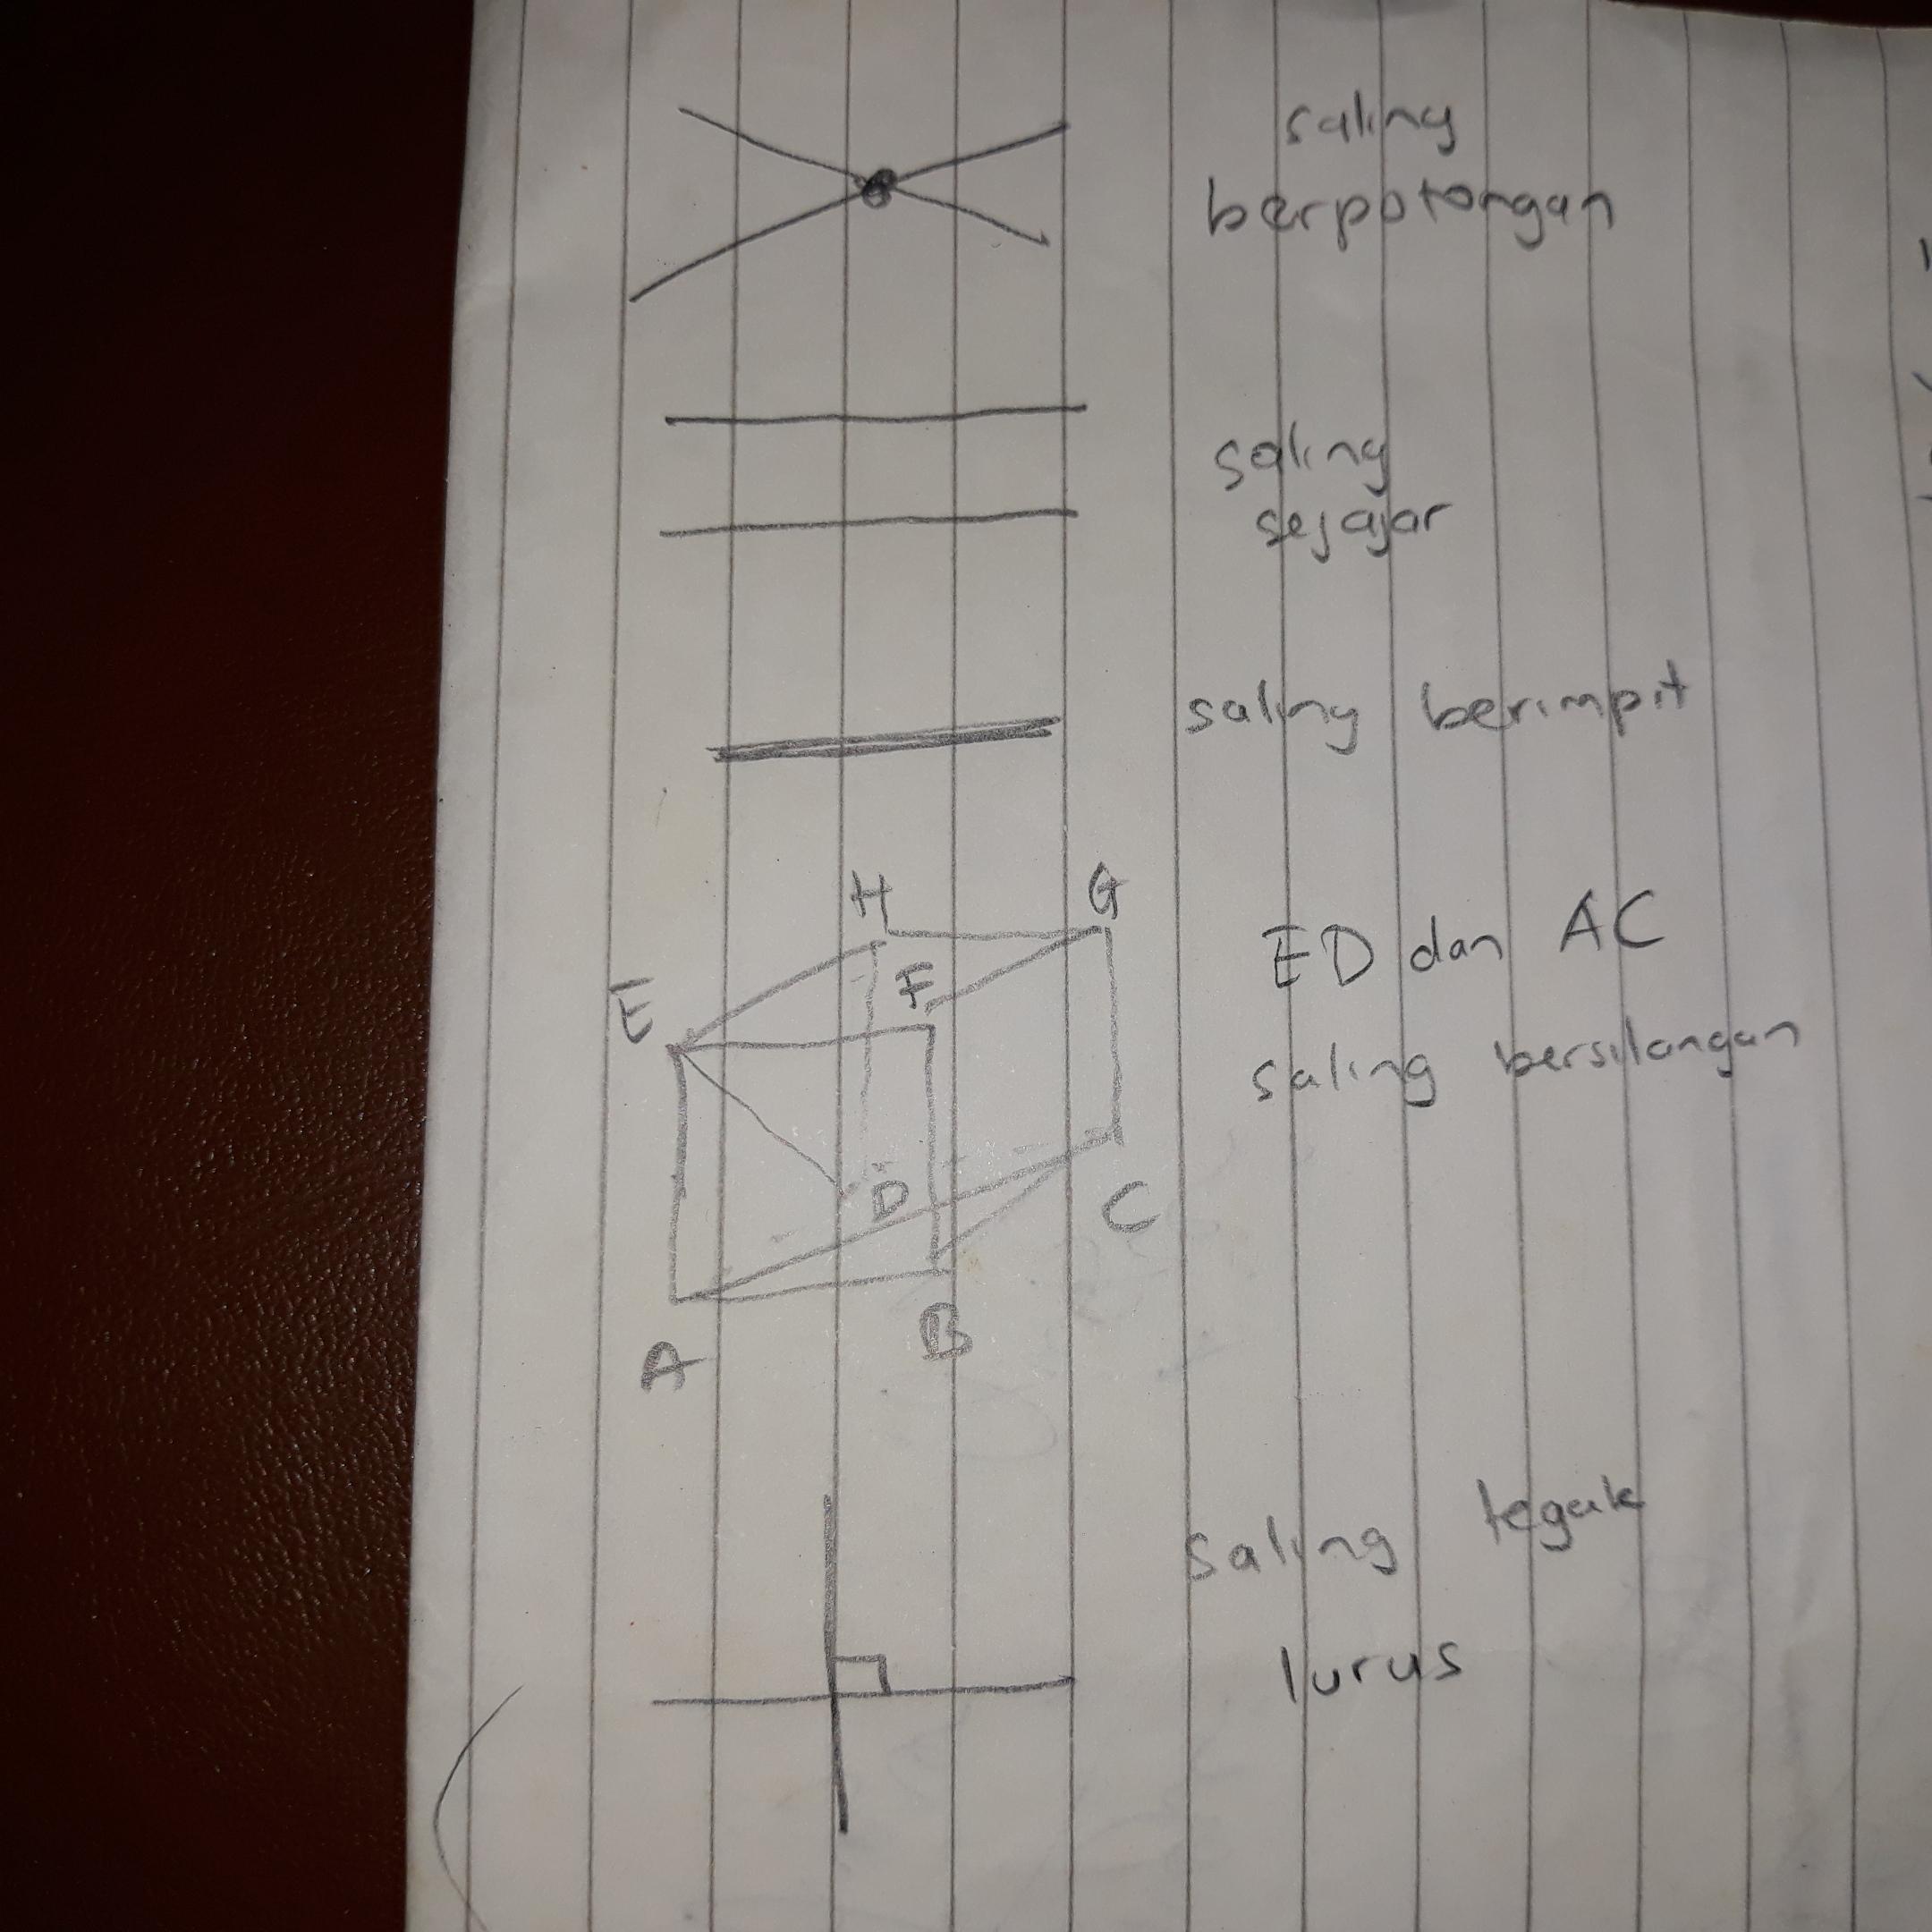 saling
berpotongan
saling
sejajar
saling berimpit
H G
E F
ED dan AC
saling bersilangan
D C
A B
saling tegak
lurus